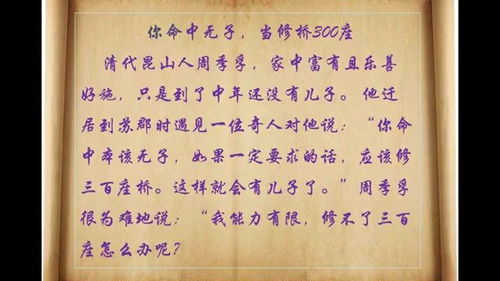 你命中无子，当修桥300座
清代昆山人周季孚，家中富有且乐善
好施，只是到了中年还没有儿子。他迁
居到苏郡时遇见一位奇人对他说：“你命
中本该无子，如果一定要求的话，应该修
三百座桥。这样就会有儿子了。”周季孚
很为难地说：“我能力有限，修不了三百
座怎么办呢？